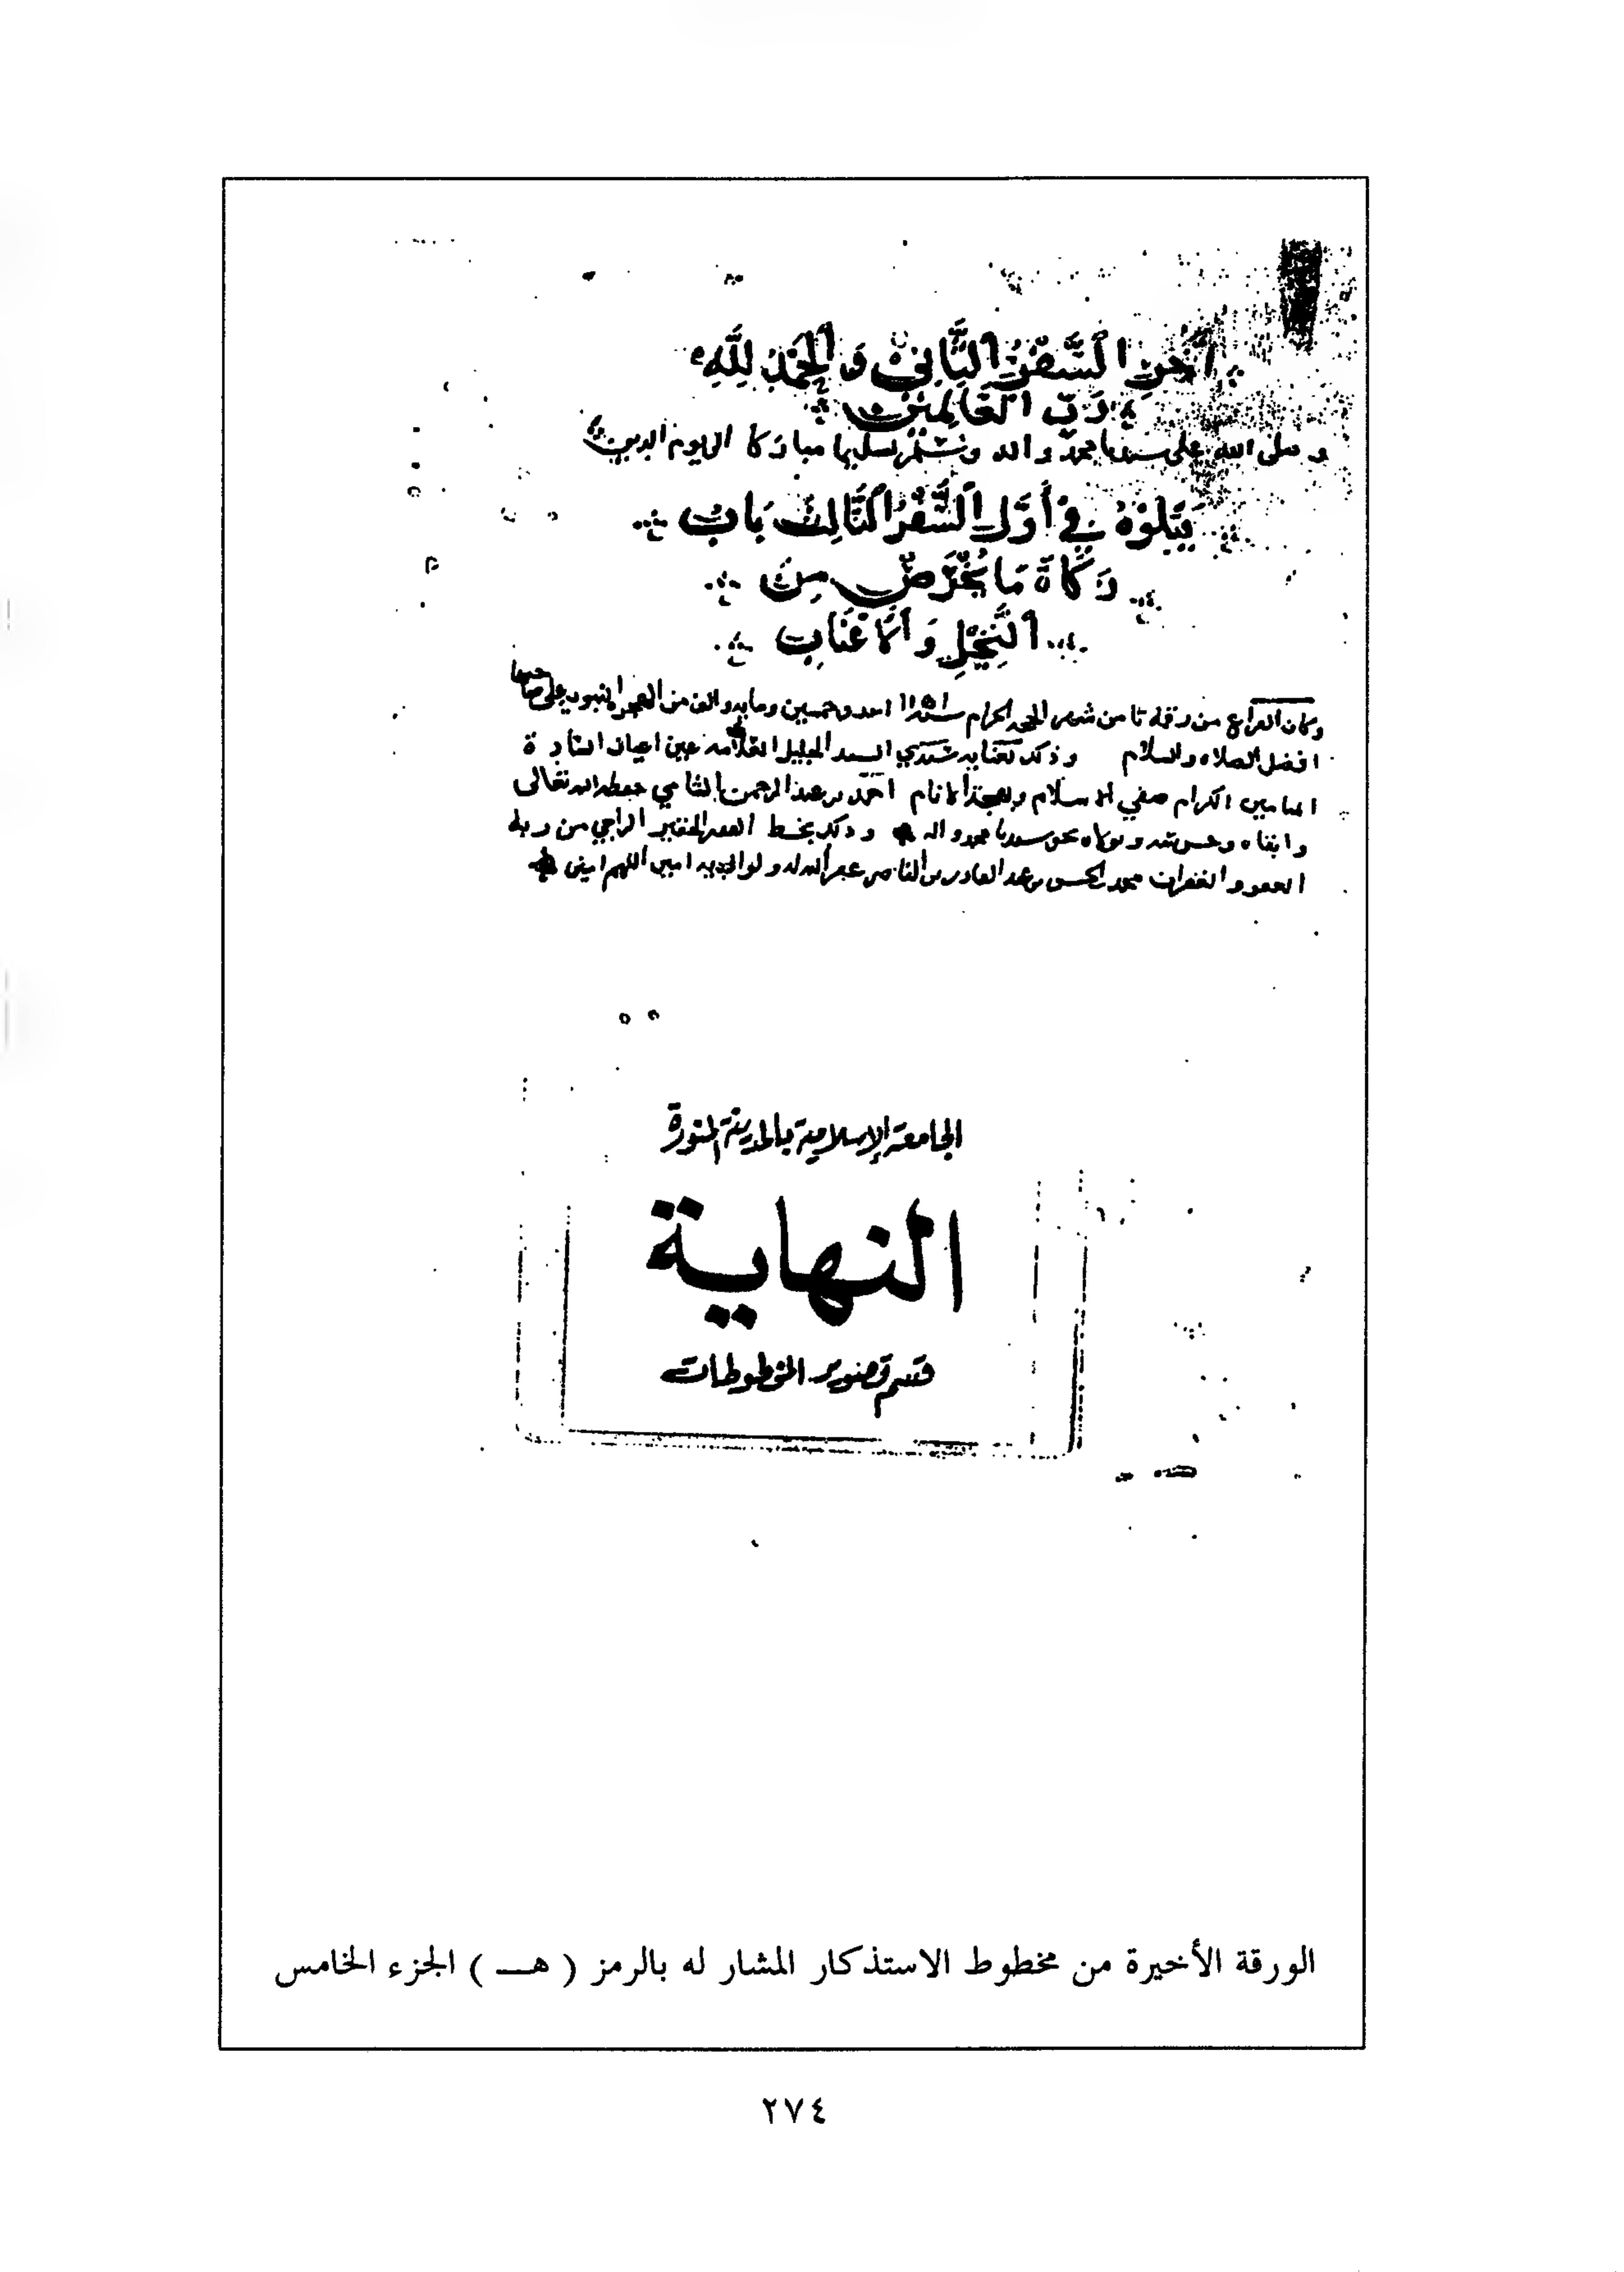 آخر السفر الثاني والحمد لله
رب العالمين
وصلى الله على سيدنا محمد واله وسلم تسليما مباركا الى يوم الدين
يتلوه في أول السفر الثالث باب
زكاة ما يخرص من
النخيل والأعناب
وكان الفراغ من رقمه ثامن شهر الحجة الحرام سنة ١١٥١ احد وخمسين ومايه والف من الهجرة النبويه على صاحبها
افضل الصلاه والسلام وذلك بعنايه سيدي السيد الجليل العلامه عين اعيان السادة
الميامين الكرام صفي الاسلام وبهجة الانام احمد بن عبد الرحمن الشامي حفظه الله تعالى
وابقاه وحرسه وتولاه بحق سيدنا محمد واله وذلك بخط الفقير الحقير الراجي من ربه
العفو والغفران محمد بن الحسن بن عبد القادر بن الناصر غفر الله له ولوالديه امين اللهم امين
الجامعة الإسلامية بالمدينة المنورة
النهاية
قسم تصوير المخطوطات
الورقة الأخيرة من مخطوط الاستذكار المشار له بالرمز ( هـ ) الجزء الخامس
٢٧٤